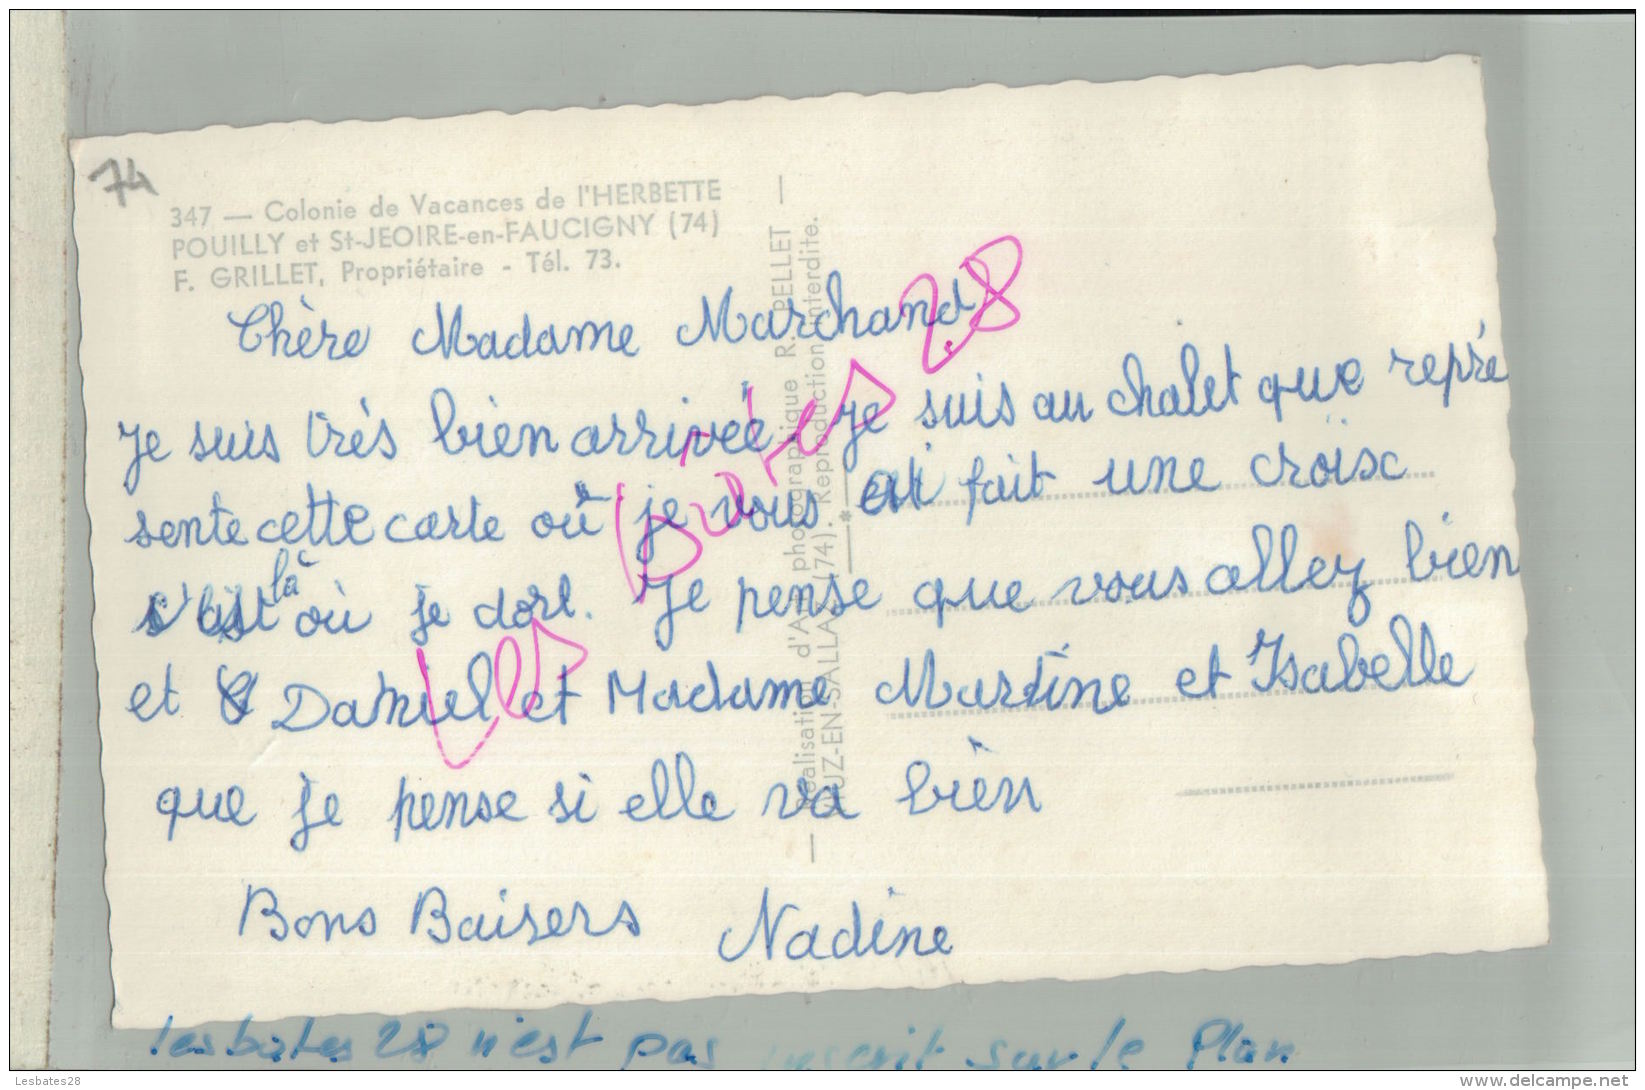 74
347 — Colonie de Vacances de l'HERBETTE
POUILLY et St-JEOIRE-en-FAUCIGNY (74)
F. GRILLET, Propriétaire - Tél. 73.
Chère Madame Marchand
Je suis très bien arrivée je suis au chalet que repré
sente cette carte où je vous ai fait une croisc
s'est là où je dort. Je pense que vous allez bien
et Daniel et Madame Martine et Isabelle
que je pense si elle va bien
Bons Baisers Nadine
— Réalisation d'Art photographique R. PELLET —
(74). Reproduction interdite.
Les Bates 28
les bates 28 n'est pas inscrit sur le Plan
Lesbates28
www.delcampe.net